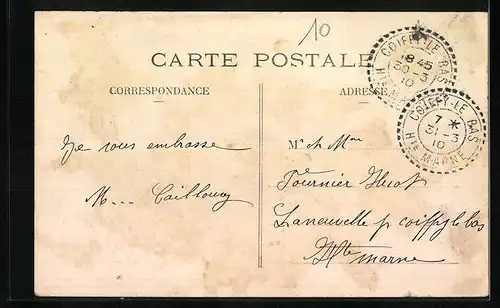 10
CARTE POSTALE
CORRESPONDANCE
ADRESSE
COIFFY-LE BAS
8 45
30 - 3
10
Hte MARNE
COIFFY-LE BAS
7 *
31 - 3
10
Hte MARNE
Je vous embrasse
M... Caillouoy
Mr et Mme
Fournier Huot
Laneuvelle p coiffy le bas
Hte marne